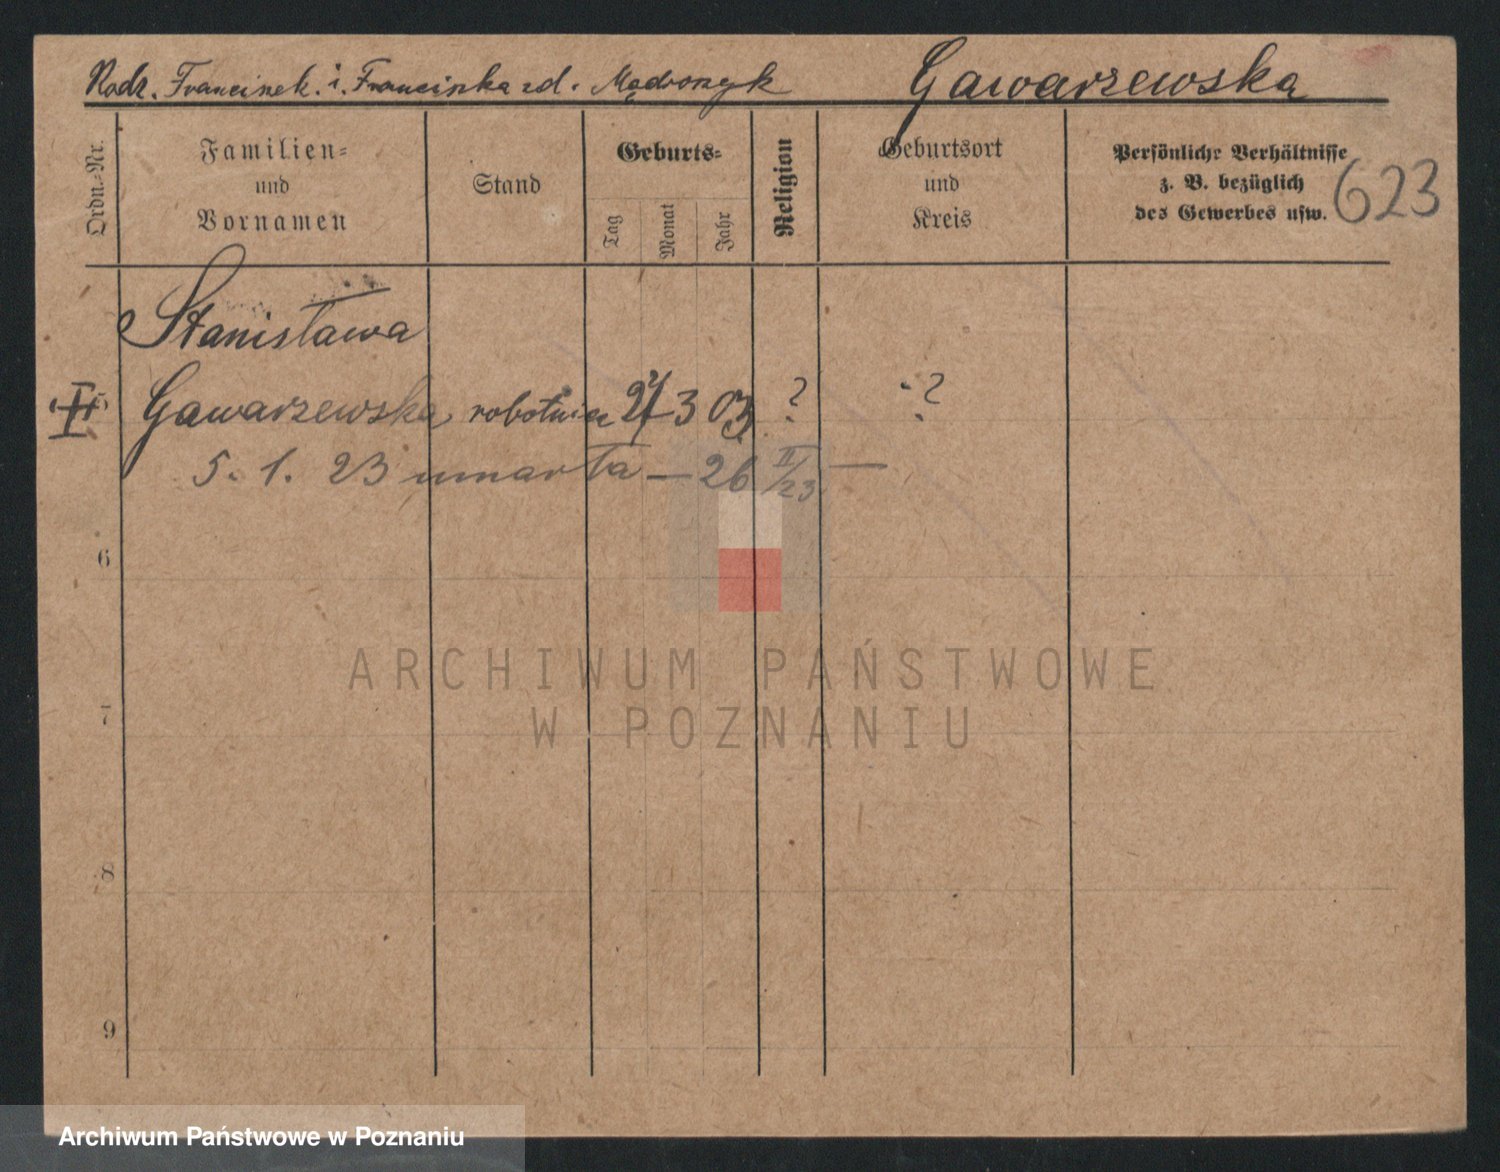 Rodz. Franciszek. i. Franciszka zd. Mądroszyk Gawarzewska
Ordn.-Nr.
Familien-
und
Vornamen
Stand
Geburts-
Tag
Monat
Jahr
Religion
Geburtsort
und
Kreis
Persönliche Verhältnisse
z. B. bezüglich
des Gewerbes usw.
623
Stanisława
Gawarzewska robotnica 27 3 03 ? ?
5. 1. 23 umarła — 26 II/23 —
6
7
8
9
ARCHIWUM PAŃSTWOWE
W POZNANIU
Archiwum Państwowe w Poznaniu